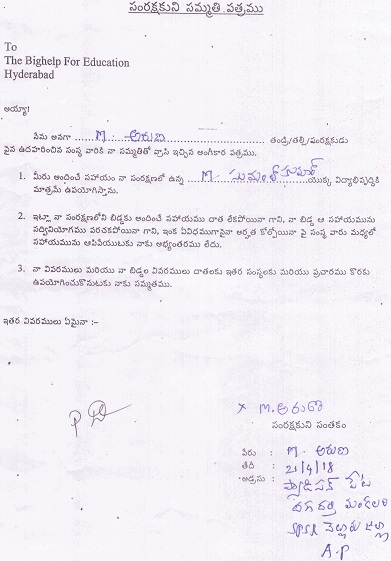 సంరక్షకుని సమ్మతి పత్రము
To
The Bighelp For Education
Hyderabad
అయ్యా!
నేను అనగా M. అరుణ తండ్రి/తల్లి/సంరక్షకుడు
పైన ఉదహరించిన సంస్థ వారికి నా సమ్మతితో వ్రాసి ఇచ్చిన అంగీకార పత్రము.
1. మీరు అందించే సహాయం నా సంరక్షణలో ఉన్న M. యొక్క విద్యాభివృద్ధికి
మాత్రమే ఉపయోగిస్తాను.
2. ఇట్లా నా సంరక్షణలోని బిడ్డకు అందించే సహాయము దాత లేకపోయినా గాని, నా బిడ్డ ఆ సహాయమును
సద్వినియోగము పరచకపోయినా గాని, ఇంక ఏవిధముగానైనా అర్హత కోల్పోయినా పై సంస్థ వారు మధ్యలో
సహాయమును ఆపివేయుటకు నాకు అభ్యంతరము లేదు.
3. నా వివరములు మరియు నా బిడ్డల వివరములు దాతలకు ఇతర సంస్థలకు మరియు ప్రచారము కొరకు
ఉపయోగించుకొనుటకు నాకు సమ్మతము.
ఇతర వివరములు ఏమైనా :-
x M. అరుణ
సంరక్షకుని సంతకం
పేరు : M. అరుణ
తేదీ : 21/4/18
అడ్రసు :
దగదర్తి
SPSR నెల్లూరు జిల్లా
A.P